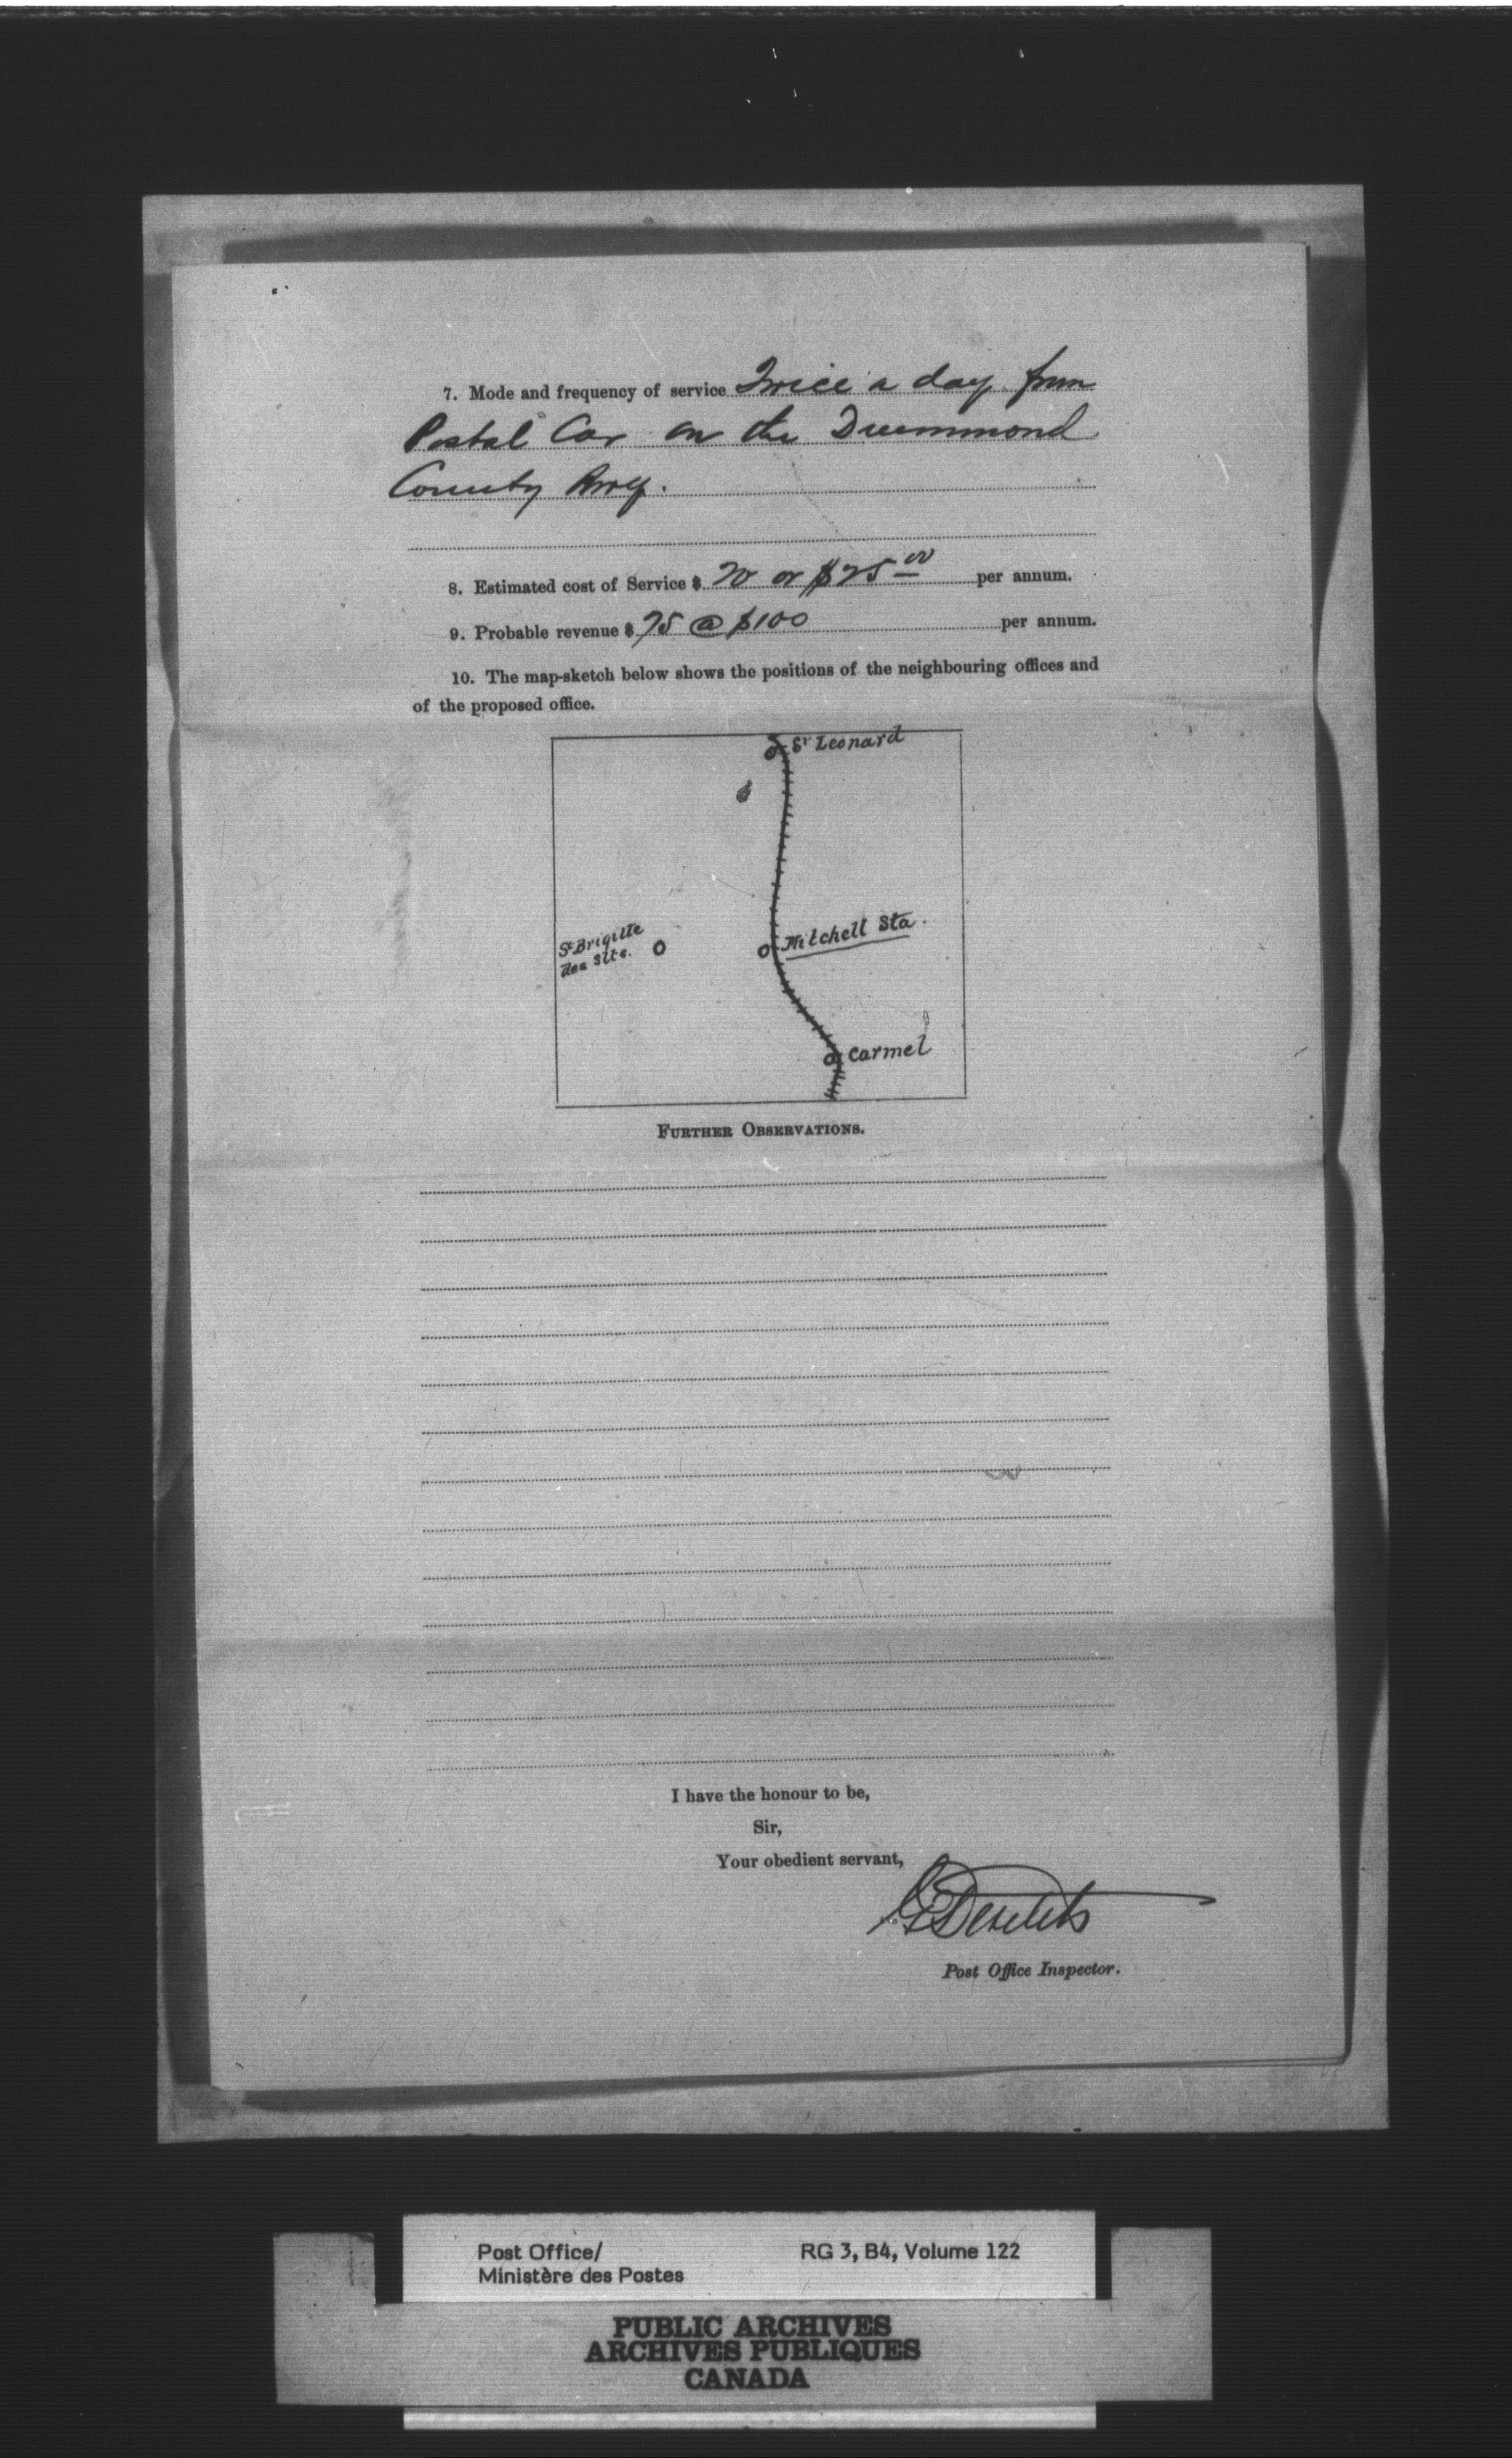 7. Mode and frequency of service Twice a day from
Postal Car on the Drummond
County Rwy.
8. Estimated cost of Service $ 20 or $25.00 per annum.
9. Probable revenue $ 75 @ $100 per annum.
10. The map-sketch below shows the positions of the neighbouring offices and
of the proposed office.
St Leonard
St Brigitte
des Slts.
Mitchell Sta.
Carmel
FURTHER OBSERVATIONS.
I have the honour to be,
Sir,
Your obedient servant,
Desilets
Post Office Inspector.
Post Office/
Ministère des Postes
RG 3, B4, Volume 122
PUBLIC ARCHIVES
ARCHIVES PUBLIQUES
CANADA